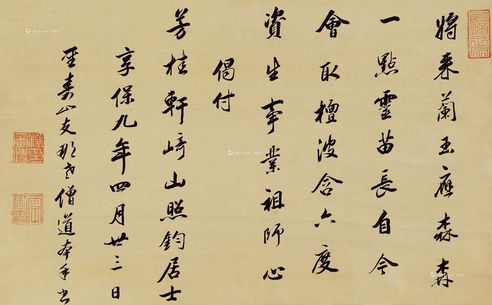 將來蘭玉應森森
一點靈苗長自今
會取檀波含六度
資生事業祖師心
偈付
芳桂軒崎山照鈞居士
享保九年四月廿三日
聖壽山支那老僧道本手書